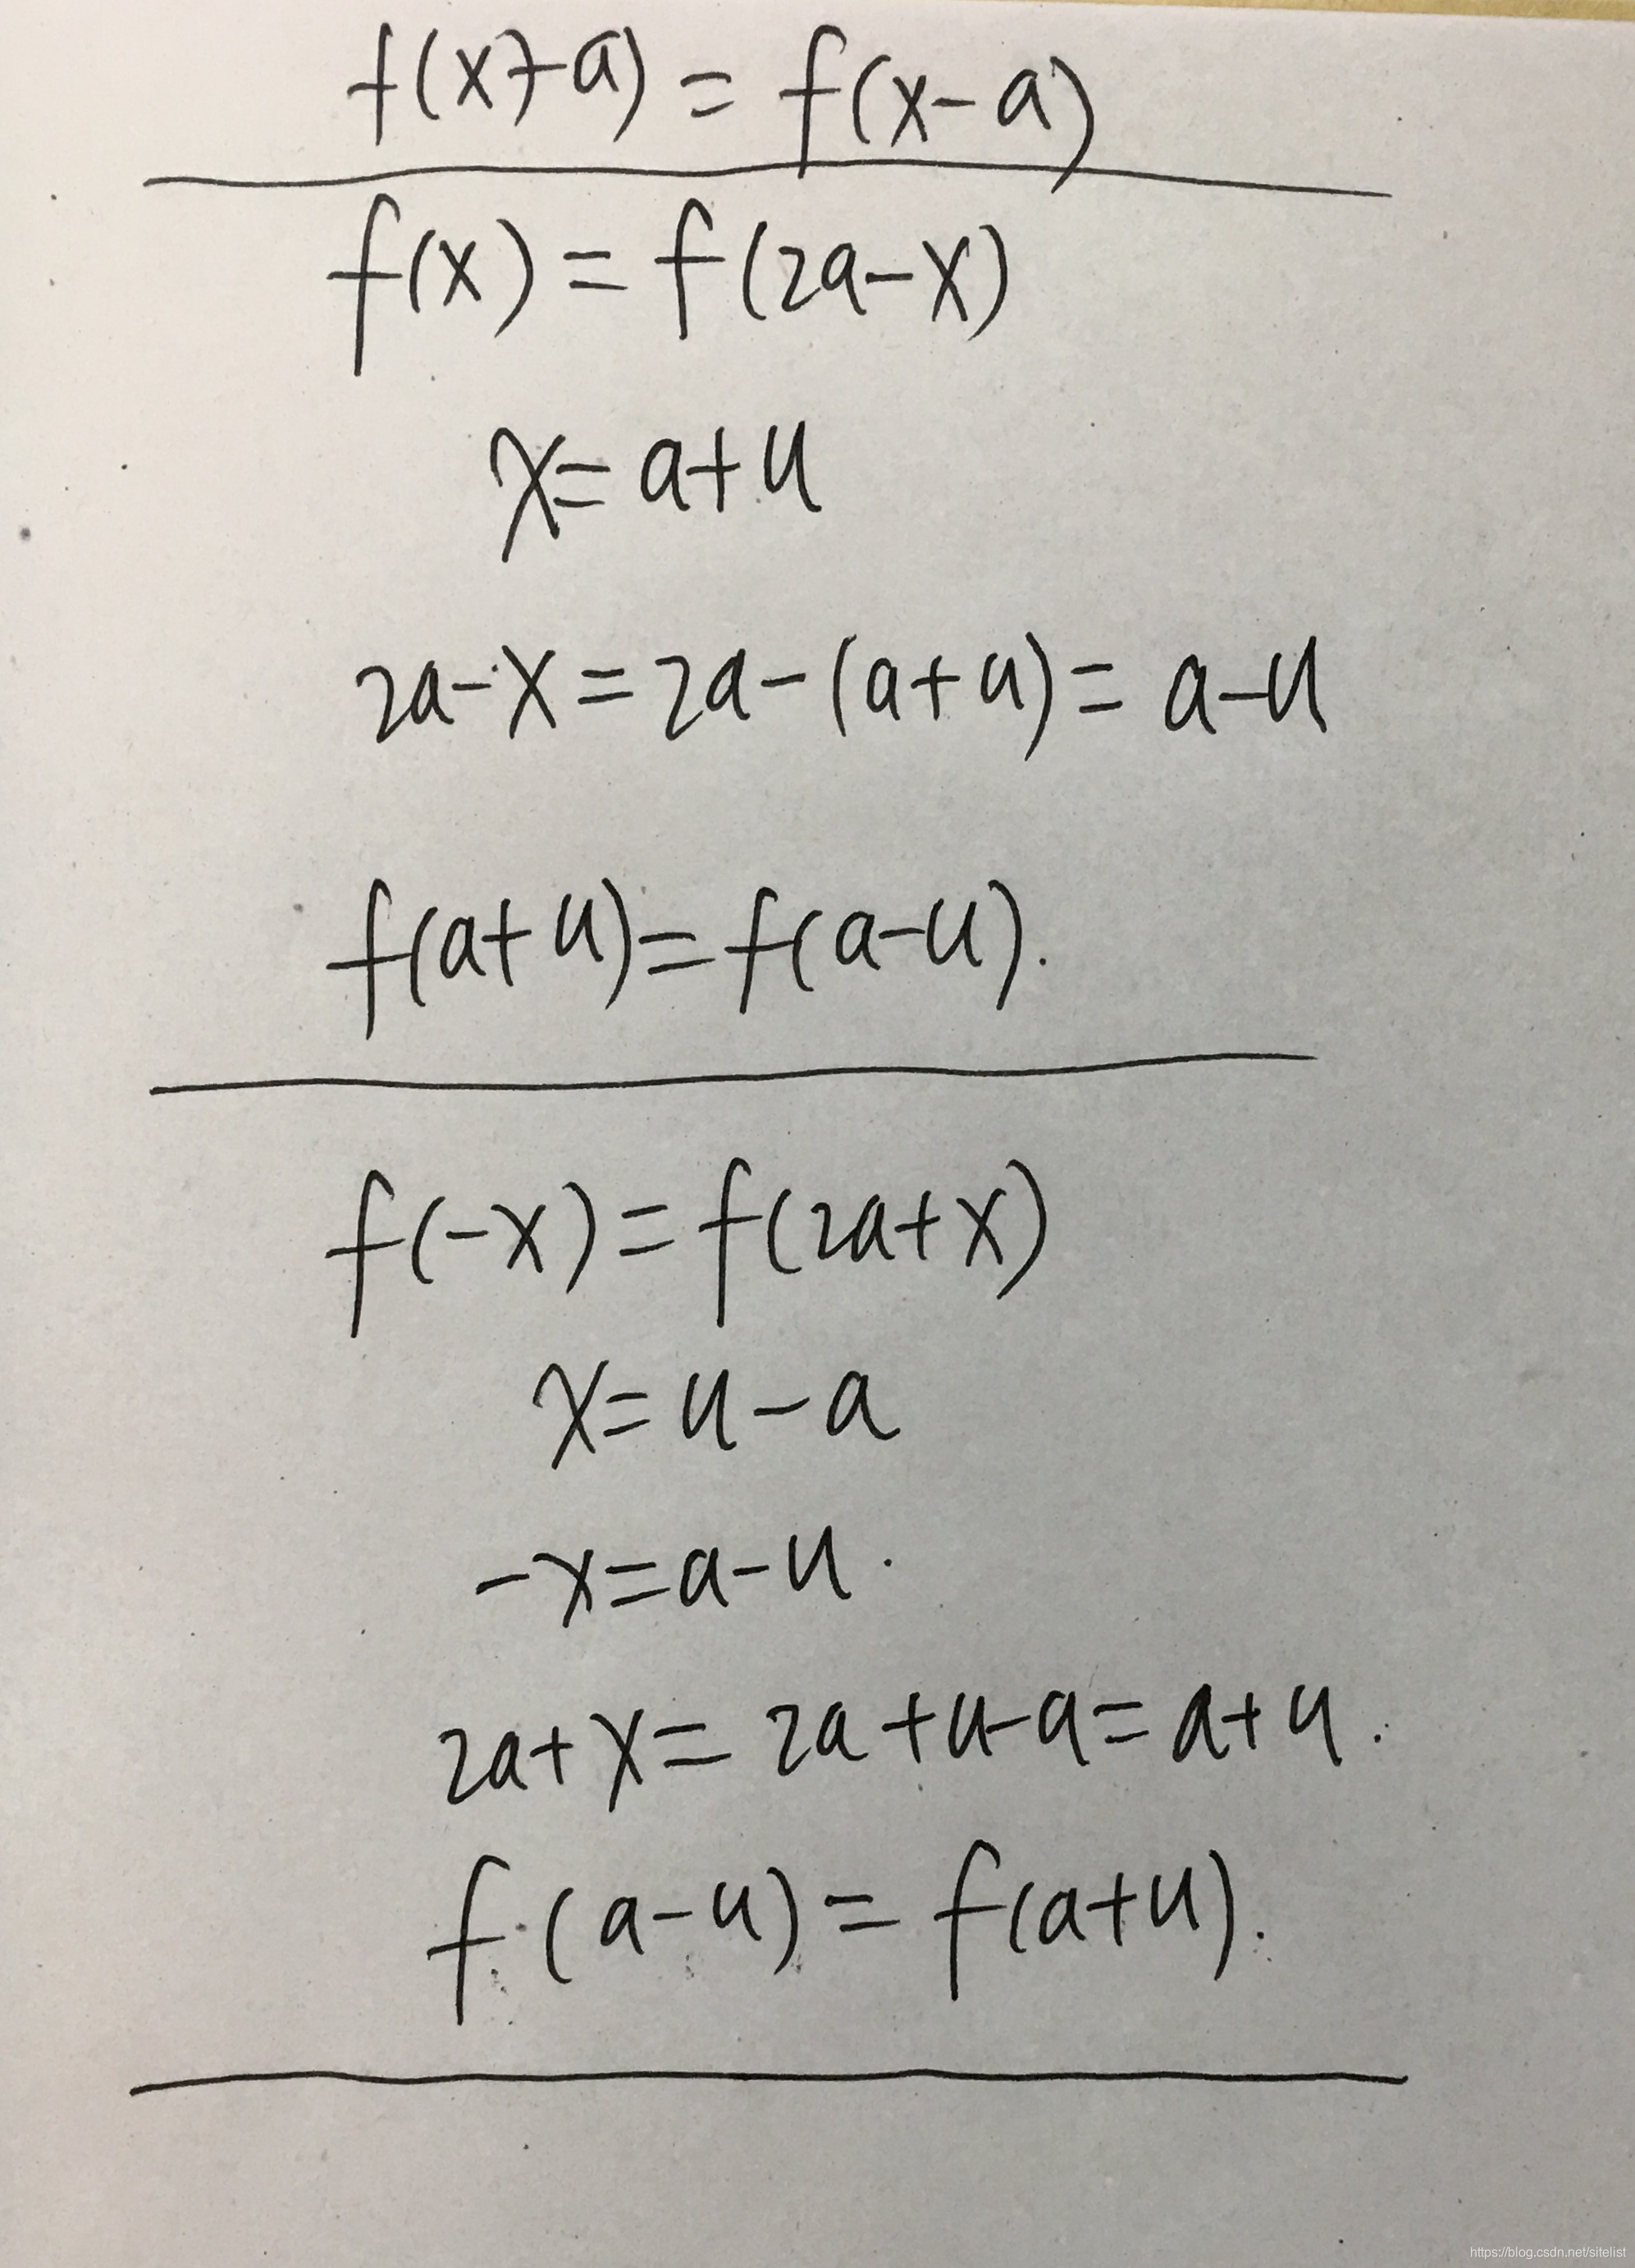 f(x+a) = f(x-a)
f(x) = f(2a-x)
x = a+u
2a-x = 2a-(a+u) = a-u
f(a+u) = f(a-u).
f(-x) = f(2a+x)
x = u-a
-x = a-u.
2a+x = 2a+u-a = a+u.
f(a-u) = f(a+u).
https://blog.csdn.net/sitelist